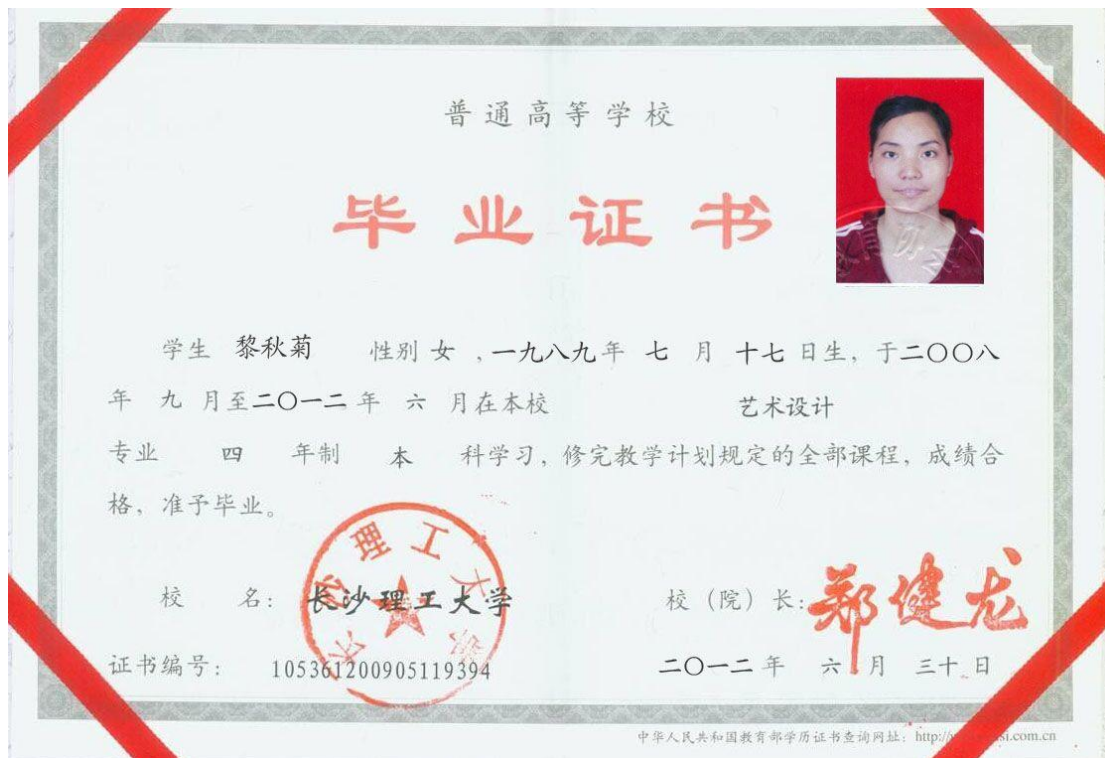 普通高等学校
毕业证书
学生 黎秋菊 性别 女 ,一九八九年 七 月 十七 日生, 于二〇〇八
年 九 月至二〇一二 年 六 月在本校 艺术设计
专业 四 年制 本 科学习, 修完教学计划规定的全部课程, 成绩合
格, 准予毕业。
长沙理工大学
校 名: 长沙理工大学 校（院）长: 郑健龙
证书编号: 105361200905119394 二〇一二 年 六 月 三十 日
中华人民共和国教育部学历证书查询网址: http:// si.com.cn